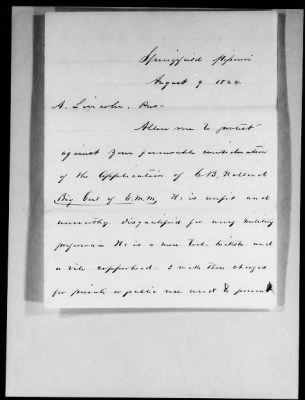 Springfield Missouri
August 9 1864.
A. Lincoln. Pres-
Allow me to protest
against your favorable consideration
of the Application of C B. Holland
Brig Genl of E.M.M. He is unfit and
unworthy. disqualified for any military
He is a mere Tool. and
a vile copperhead. I make these charges
for private or public use and to prevent